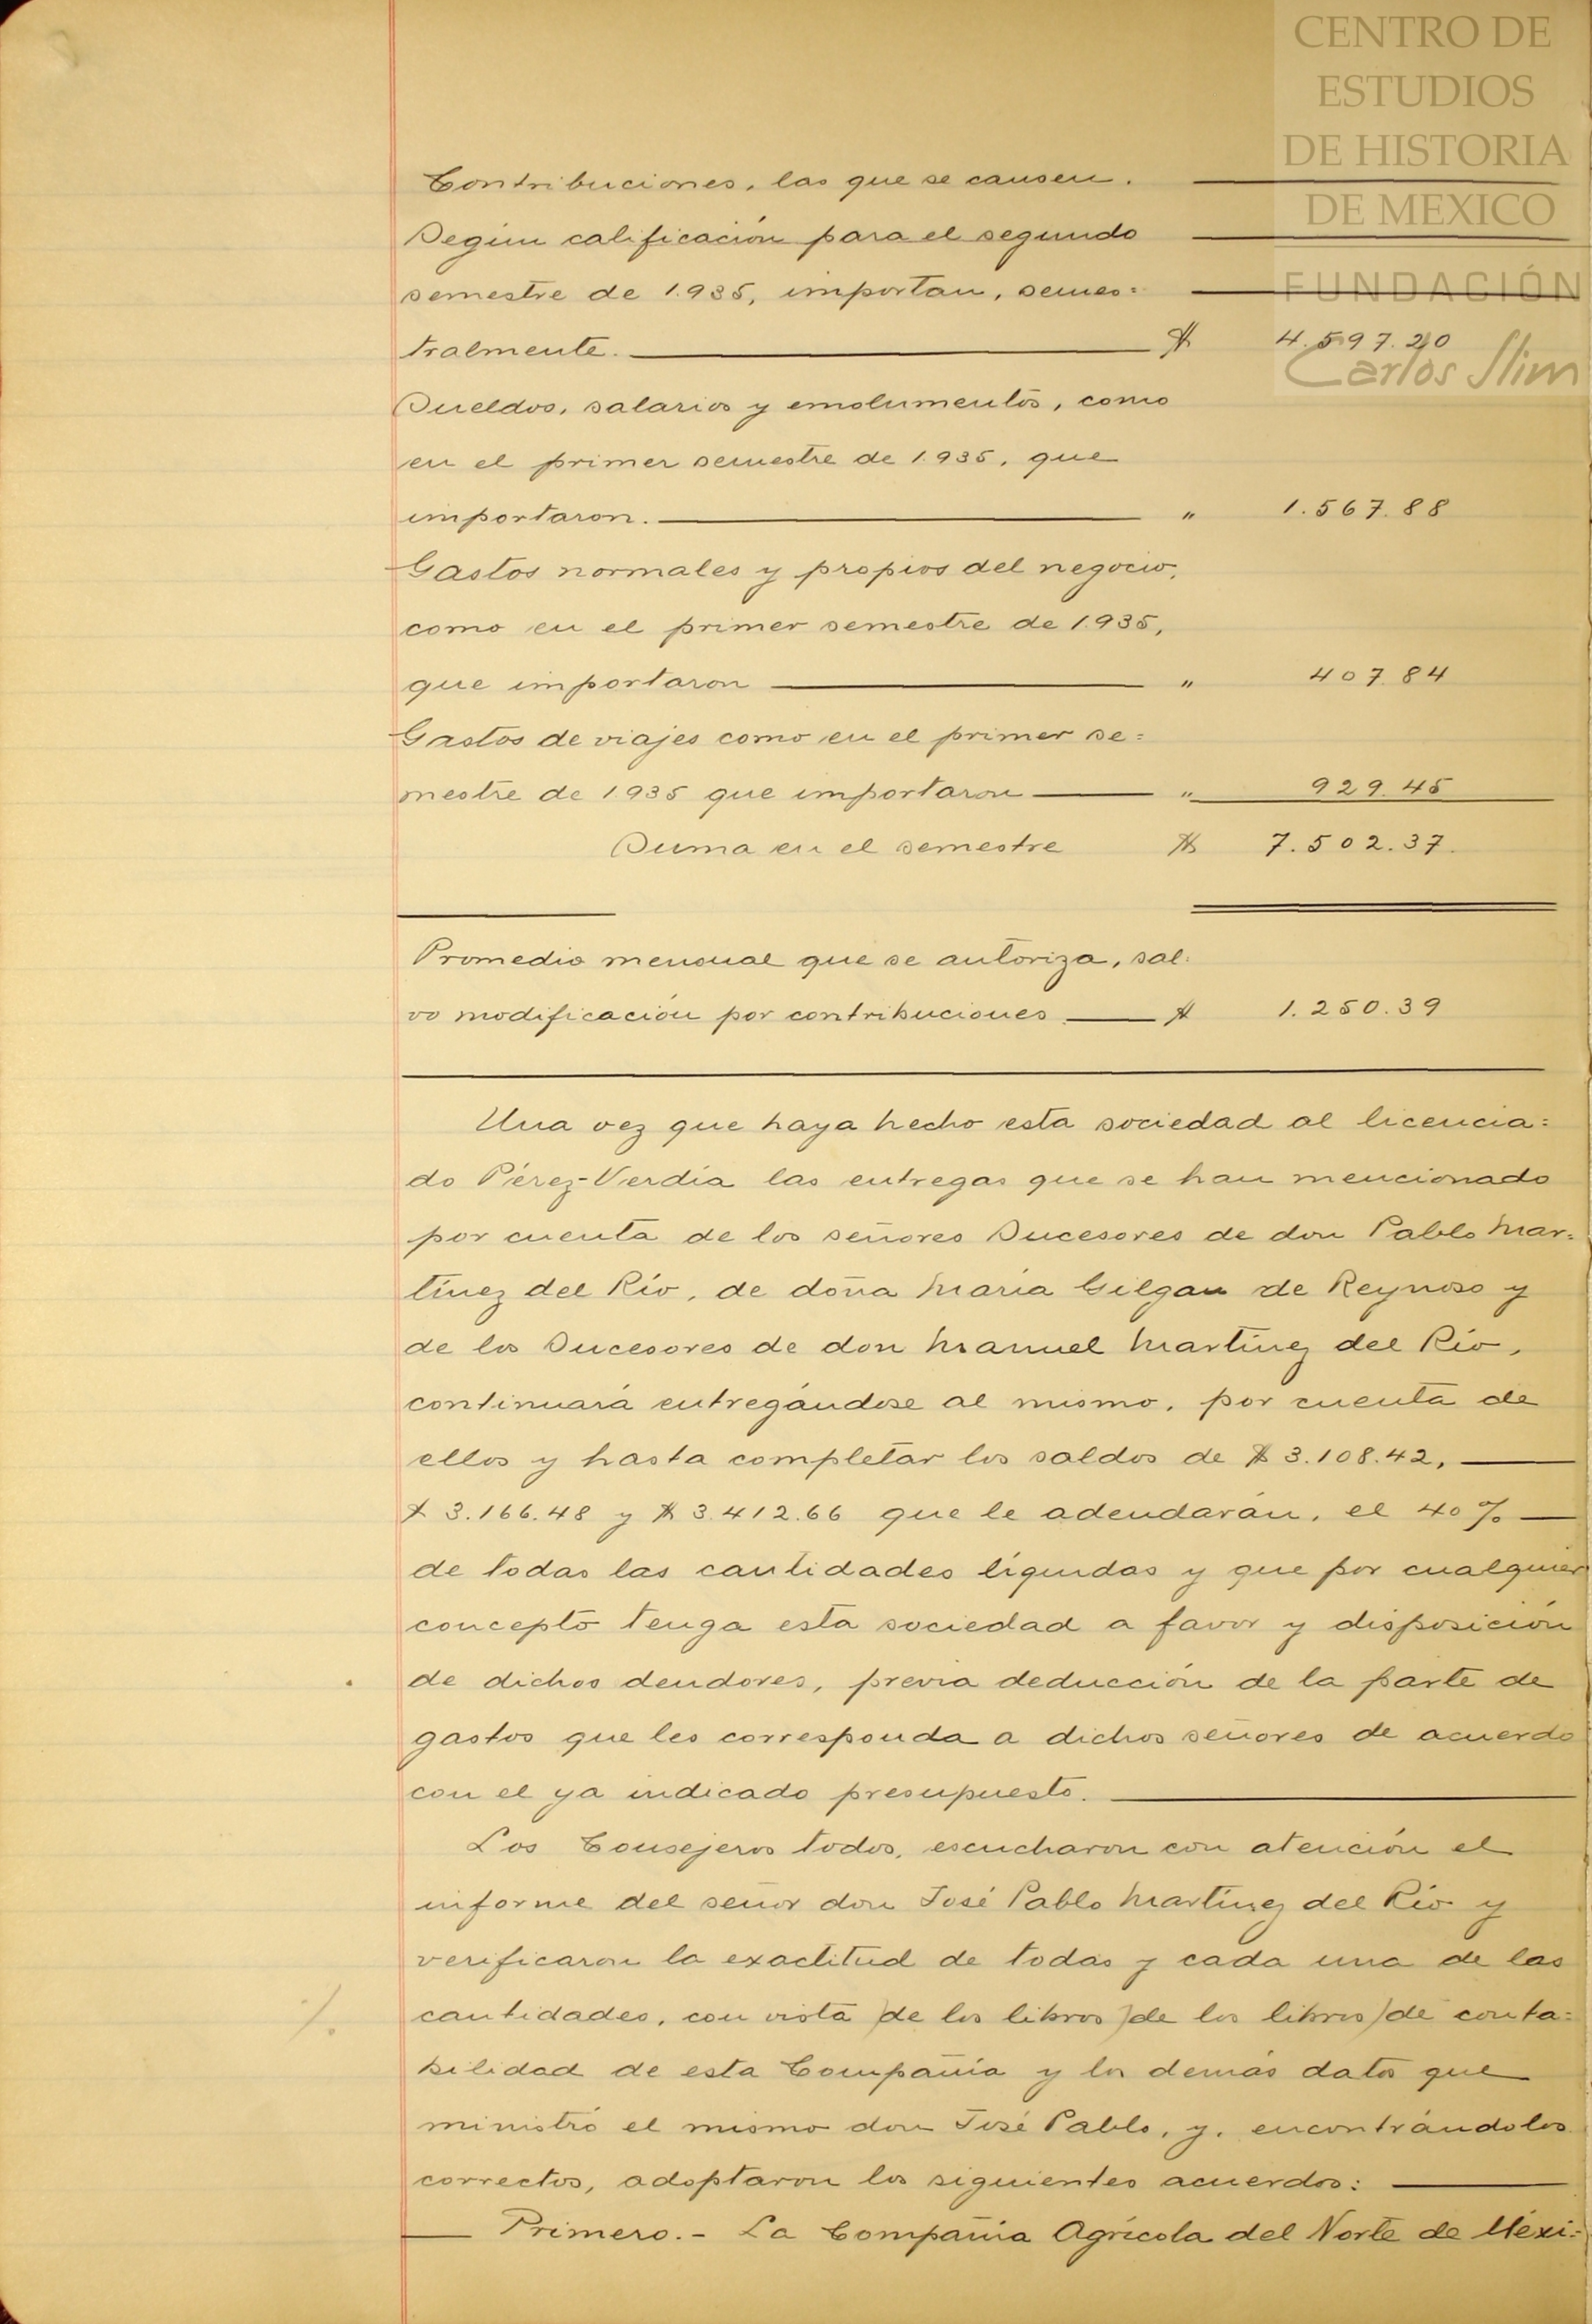 CENTRO DE
ESTUDIOS
DE HISTORIA
DE MEXICO
FUNDACIÓN
Carlos Slim
Contribuciones, las que se causen.
Según calificación para el segundo
semestre de 1.935, importan, semes=
tralmente. $ 4.597.20
Sueldos, salarios y emolumentos, como
en el primer semestre de 1.935, que
importaron. " 1.567.88
Gastos normales y propios del negocio,
como en el primer semestre de 1.935,
que importaron " 407.84
Gastos de viajes como en el primer se=
mestre de 1.935 que importaron " 929.45
Suma en el semestre $ 7.502.37.
Promedio mensual que se autoriza, sal=
vo modificación por contribuciones $ 1.250.39
Una vez que haya hecho esta sociedad al licencia=
do Pérez-Verdía las entregas que se han mencionado
por cuenta de los señores Sucesores de don Pablo Mar=
tínez del Río, de doña María Gilgan de Reynoso y
de los Sucesores de don Manuel Martínez del Río,
continuará entregándose al mismo, por cuenta de
ellos y hasta completar los saldos de $ 3.108.42,
$ 3.166.48 y $ 3.412.66 que le adeudarán, el 40%
de todas las cantidades líquidas y que por cualquier
concepto tenga esta sociedad a favor y disposición
de dichos deudores, previa deducción de la parte de
gastos que les corresponda a dichos señores de acuerdo
con el ya indicado presupuesto.
Los Consejeros todos, escucharon con atención el
informe del señor don José Pablo Martínez del Río y
verificaron la exactitud de todas y cada una de las
cantidades, con vista )de los libros )de los libros)de conta=
bilidad de esta Compañía y los demás datos que
ministró el mismo don José Pablo, y, encontrándolos
correctos, adoptaron los siguientes acuerdos:
Primero.- La Compañía Agrícola del Norte de Méxi=